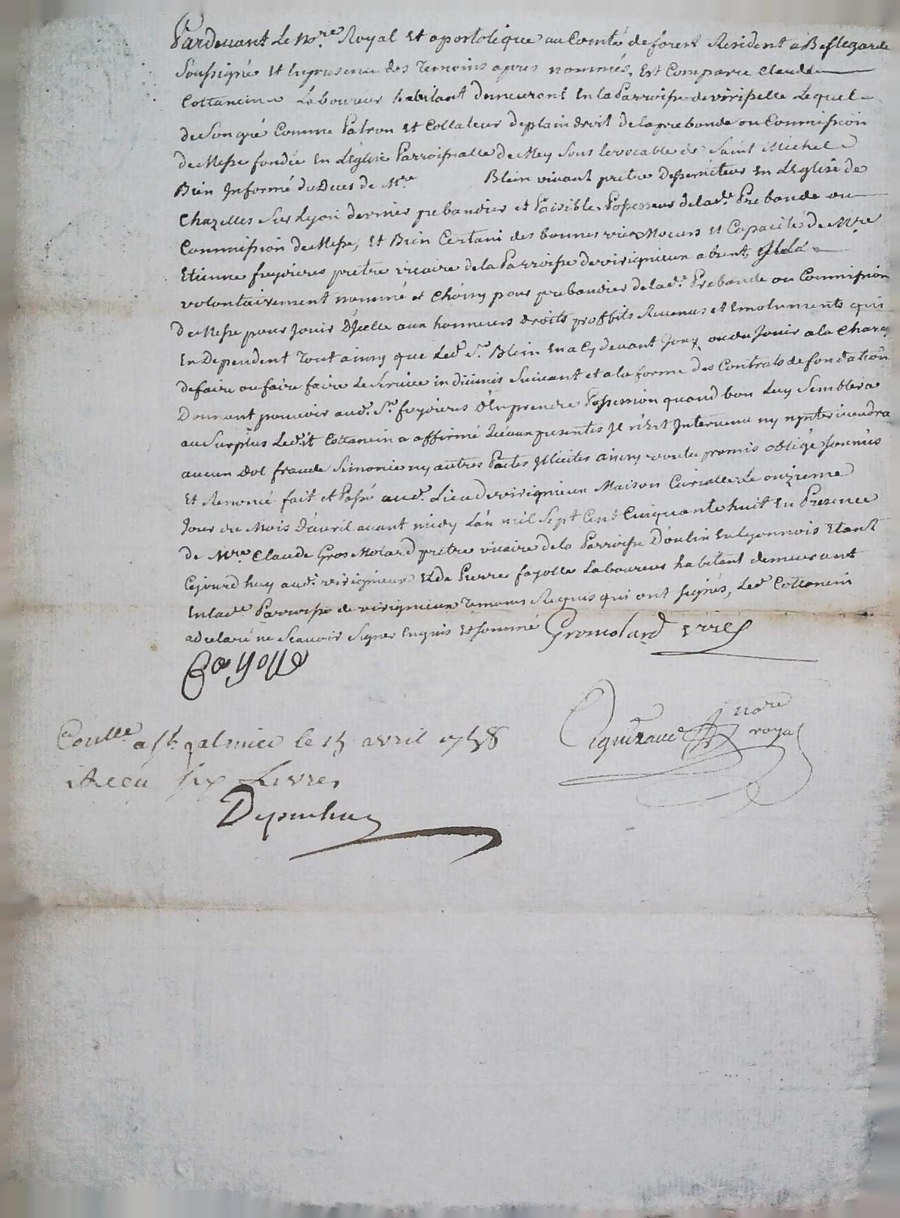 Pardevant Le No.re Royal et apostolique au Comté de forest Resident a Bellegarde
Soussigné et En presence des Temoins apres nommés, Est Comparu Claude
Cottancin Laboureur habitant demeurant En la Parroisse de viricelle Lequel
de Son gré Comme Patron et Collateur de plain droit de la prebande ou Commission
de Messe fondée En L'Eglise Parroissialle de Mey Sous le vocable de Saint Michel
Bien Informé du Deces de M.re Blein vivant pretre desserviteur En L'Eglise de
Chazelles Sur Lyon dernier prebandier et Paisible Possesseur de lad.e Prebande ou
Commission de Messe, Et Bien Certain des bonnes vies Moeurs et Capacité de M.re
Etienne fujoieres pretre vicaire de la Parroisse de virigneux absent Il l'a
volontairement nommé et Choisy pour prebandier de lad.e Prebande ou Commission
de Messe pour Jouir D'Icelle aux honneurs droits proffits Revenus et Emoluments qui
En Dependent Tout ainsy que Led.t S.r Blein En a Cy devant Jouy ou du Jouir a la Charge
de faire ou faire faire Le Service in divinis Suivant et a la forme des Contrats de fondation
Donnant pouvoir aud.t S.r fujoieres d'En prendre Possession quand bon Luy Semblera
au Surplus Ledit Cottancin a affirmé qu'aux presentes Il n'Est Intervenu ny n'Interviendra
aucun Dol fraude Simonie ny autres Pactes Illicites ainsy voulu promis obligé Soumis
Et Renoncé fait et Passé aud.t Lieu de virigneux Maison Curialle Le onzieme
Jour du Mois D'avril avant midy L'an mil Sept Cent Cinquante huit En Presence
de M.re Claude Gros Molard pretre vicaire de la Parroisse D'oulin En Lyonnois Etant
Cejourd'huy aud.t virigneux Et de Pierre fayolle Laboureur habitant demeurant
En lad.e Parroisse de virigneux Temoins Requis qui ont Signés, Led.t Cottancin
a declaré ne Scavoir Signer Enquis et Sommé Gromolard
fayolle
nore
royal
Conlle a St galmier le 15 avril 1758
Reçu six Livres